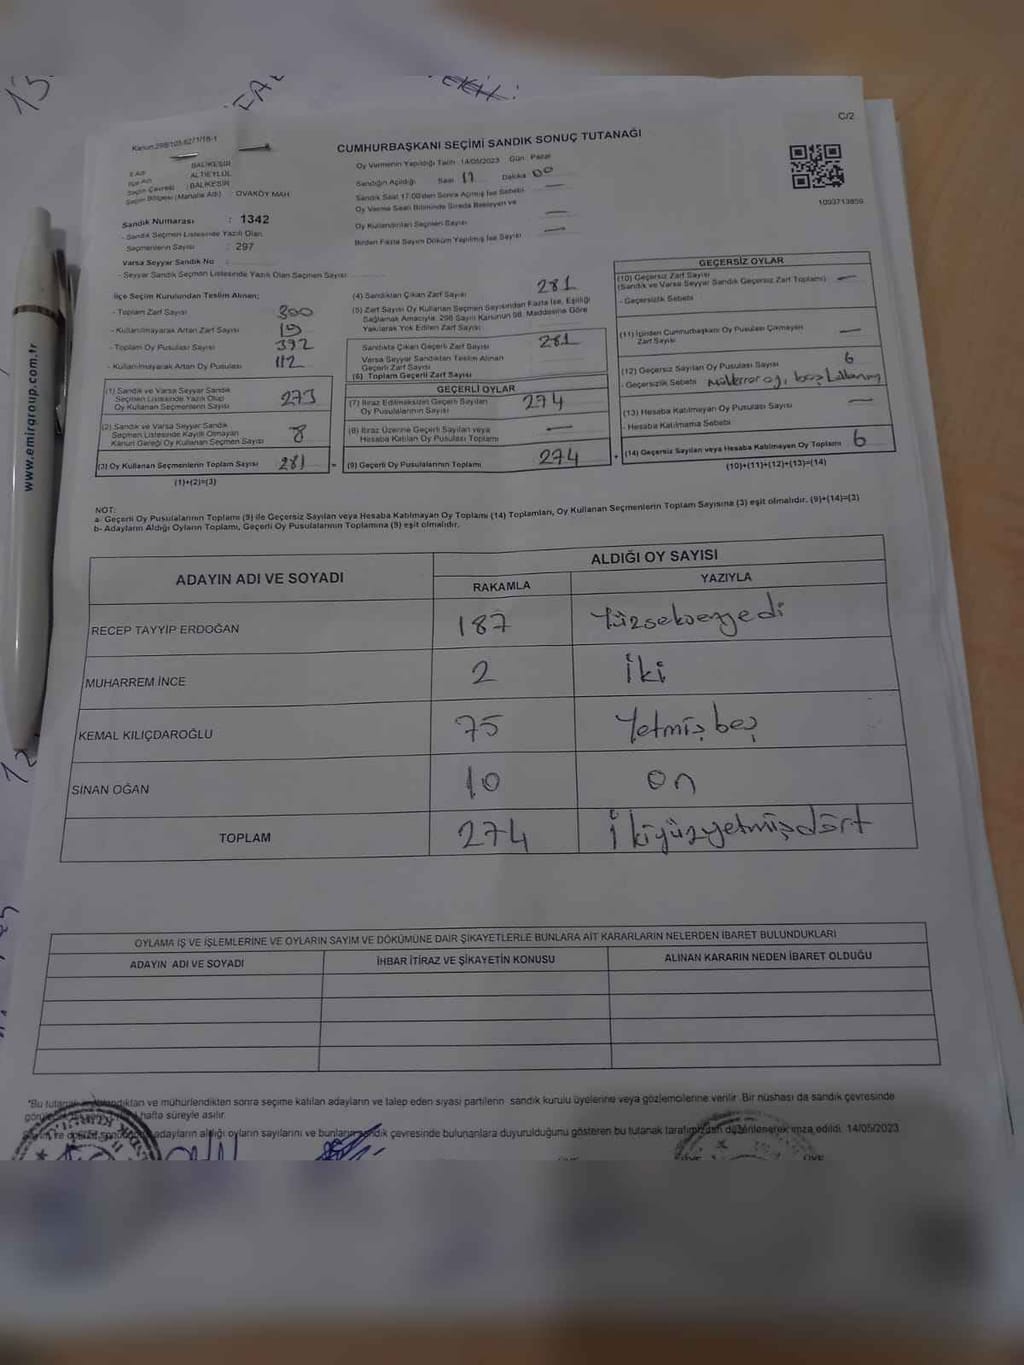 C/2
Kanun:298/105-6271/16-1
CUMHURBAŞKANI SEÇİMİ SANDIK SONUÇ TUTANAĞI
İl Adı : BALIKESİR
İlçe Adı : ALTIEYLÜL
Seçim Çevresi : BALIKESİR
Seçim Bölgesi (Mahalle Adı) : OVAKÖY MAH.
Oy Vermenin Yapıldığı Tarih : 14/05/2023 Gün : Pazar
Sandığın Açıldığı Saat 17 Dakika 00
Sandık Saat 17:00'den Sonra Açılmış İse Sebebi
Oy Verme Saati Bitiminde Sırada Bekleyen ve
Oy Kullandırılan Seçmen Sayısı
Birden Fazla Sayım Döküm Yapılmış İse Sayısı
1093713859
Sandık Numarası : 1342
- Sandık Seçmen Listesinde Yazılı Olan
Seçmenlerin Sayısı : 297
Varsa Seyyar Sandık No :
- Seyyar Sandık Seçmen Listesinde Yazılı Olan Seçmen Sayısı
İlçe Seçim Kurulundan Teslim Alınan;
- Toplam Zarf Sayısı 300
- Kullanılmayarak Artan Zarf Sayısı 19
- Toplam Oy Pusulası Sayısı 392
- Kullanılmayarak Artan Oy Pusulası 112
(1) Sandık ve Varsa Seyyar Sandık
Seçmen Listesinde Yazılı Olup
Oy Kullanan Seçmenlerin Sayısı 273
(2) Sandık ve Varsa Seyyar Sandık
Seçmen Listesinde Kayıtlı Olmayan
Kanun Gereği Oy Kullanan Seçmen Sayısı 8
(3) Oy Kullanan Seçmenlerin Toplam Sayısı 281
(1)+(2)=(3)
(4) Sandıktan Çıkan Zarf Sayısı 281
(5) Zarf Sayısı Oy Kullanan Seçmen Sayısından Fazla İse, Eşitliği
Sağlamak Amacıyla, 298 Sayılı Kanunun 98. Maddesine Göre
Yakılarak Yok Edilen Zarf Sayısı
Sandıkta Çıkan Geçerli Zarf Sayısı 281
Varsa Seyyar Sandıktan Teslim Alınan
Geçerli Zarf Sayısı
(6) Toplam Geçerli Zarf Sayısı
GEÇERLİ OYLAR
(7) İtiraz Edilmeksizin Geçerli Sayılan
Oy Pusulalarının Sayısı 274
(8) İtiraz Üzerine Geçerli Sayılan veya
Hesaba Katılan Oy Pusulası Toplamı
(9) Geçerli Oy Pusulalarının Toplamı 274
GEÇERSİZ OYLAR
(10) Geçersiz Zarf Sayısı
(Sandık ve Varsa Seyyar Sandık Geçersiz Zarf Toplamı)
- Geçersizlik Sebebi
(11) İçinden Cumhurbaşkanı Oy Pusulası Çıkmayan
Zarf Sayısı
(12) Geçersiz Sayılan Oy Pusulası Sayısı 6
- Geçersizlik Sebebi
(13) Hesaba Katılmayan Oy Pusulası Sayısı
- Hesaba Katılmama Sebebi
(14) Geçersiz Sayılan veya Hesaba Katılmayan Oy Toplamı 6
(10)+(11)+(12)+(13)=(14)
NOT:
a- Geçerli Oy Pusulalarının Toplamı (9) ile Geçersiz Sayılan veya Hesaba Katılmayan Oy Toplamı (14) Toplamları, Oy Kullanan Seçmenlerin Toplam Sayısına (3) eşit olmalıdır. (9)+(14)=(3)
b- Adayların Aldığı Oyların Toplamı, Geçerli Oy Pusulalarının Toplamına (9) eşit olmalıdır.
ADAYIN ADI VE SOYADI ALDIĞI OY SAYISI
RAKAMLA YAZIYLA
RECEP TAYYİP ERDOĞAN 187 Yüzseksenyedi
MUHARREM İNCE 2 İki
KEMAL KILIÇDAROĞLU 75 Yetmişbeş
SİNAN OĞAN 10 on
TOPLAM 274 İkiyüzyetmişdört
OYLAMA İŞ VE İŞLEMLERİNE VE OYLARIN SAYIM VE DÖKÜMÜNE DAİR ŞİKAYETLERLE BUNLARA AİT KARARLARIN NELERDEN İBARET BULUNDUKLARI
ADAYIN ADI VE SOYADI İHBAR İTİRAZ VE ŞİKAYETİN KONUSU ALINAN KARARIN NEDEN İBARET OLDUĞU
ve mühürlendikten sonra seçime katılan adayların ve talep eden siyasi partilerin sandık kurulu üyelerine veya gözlemcilerine verilir. Bir nüshası da sandık çevresinde
hafta süreyle asılır.
adayların aldığı oyların sayılarını ve bunların sandık çevresinde bulunanlara duyurulduğunu gösteren bu tutanak tarafımızdan düzenlenerek imza edildi. 14/05/2023
ÜYE
www.emirgroup.com.tr